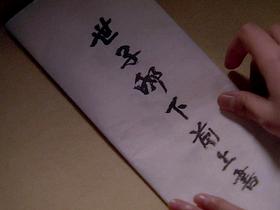 世子邸下前上書